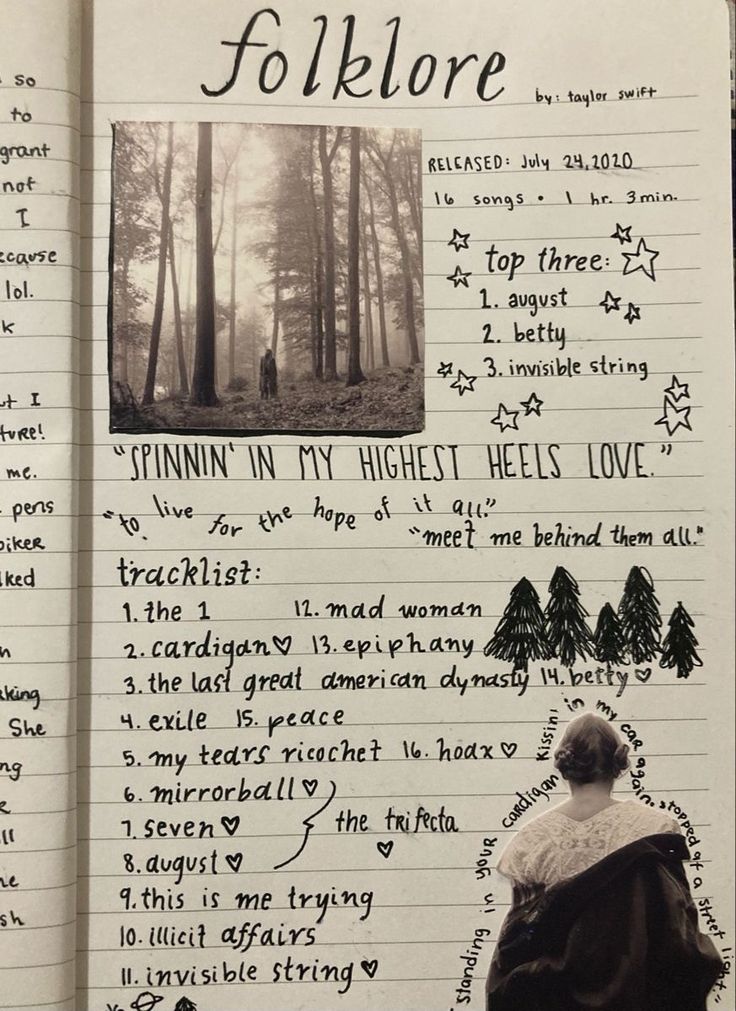 so
to
grant
not
I
ecause
lol.
k
I
ture!
me.
pens
oiker
lked
n
king
She
ng
ll
sh
folklore
by: taylor swift
RELEASED: July 24, 2020
16 songs • 1 hr. 3 min.
top three:
1. august
2. betty
3. invisible string
"SPINNIN' IN MY HIGHEST HEELS LOVE."
"to live for the hope of it all."
"meet me behind them all."
tracklist:
1. the 1 12. mad woman
2. cardigan♡ 13. epiphany
3. the last great american dynasty 14. betty♡
4. exile 15. peace
5. my tears ricochet 16. hoax♡
6. mirrorball♡
7. seven♡ the trifecta
♡
8. august♡
9. this is me trying
10. illicit affairs
11. invisible string♡
"Standing in your cardigan kissin' in my car again. stopped at a street light."